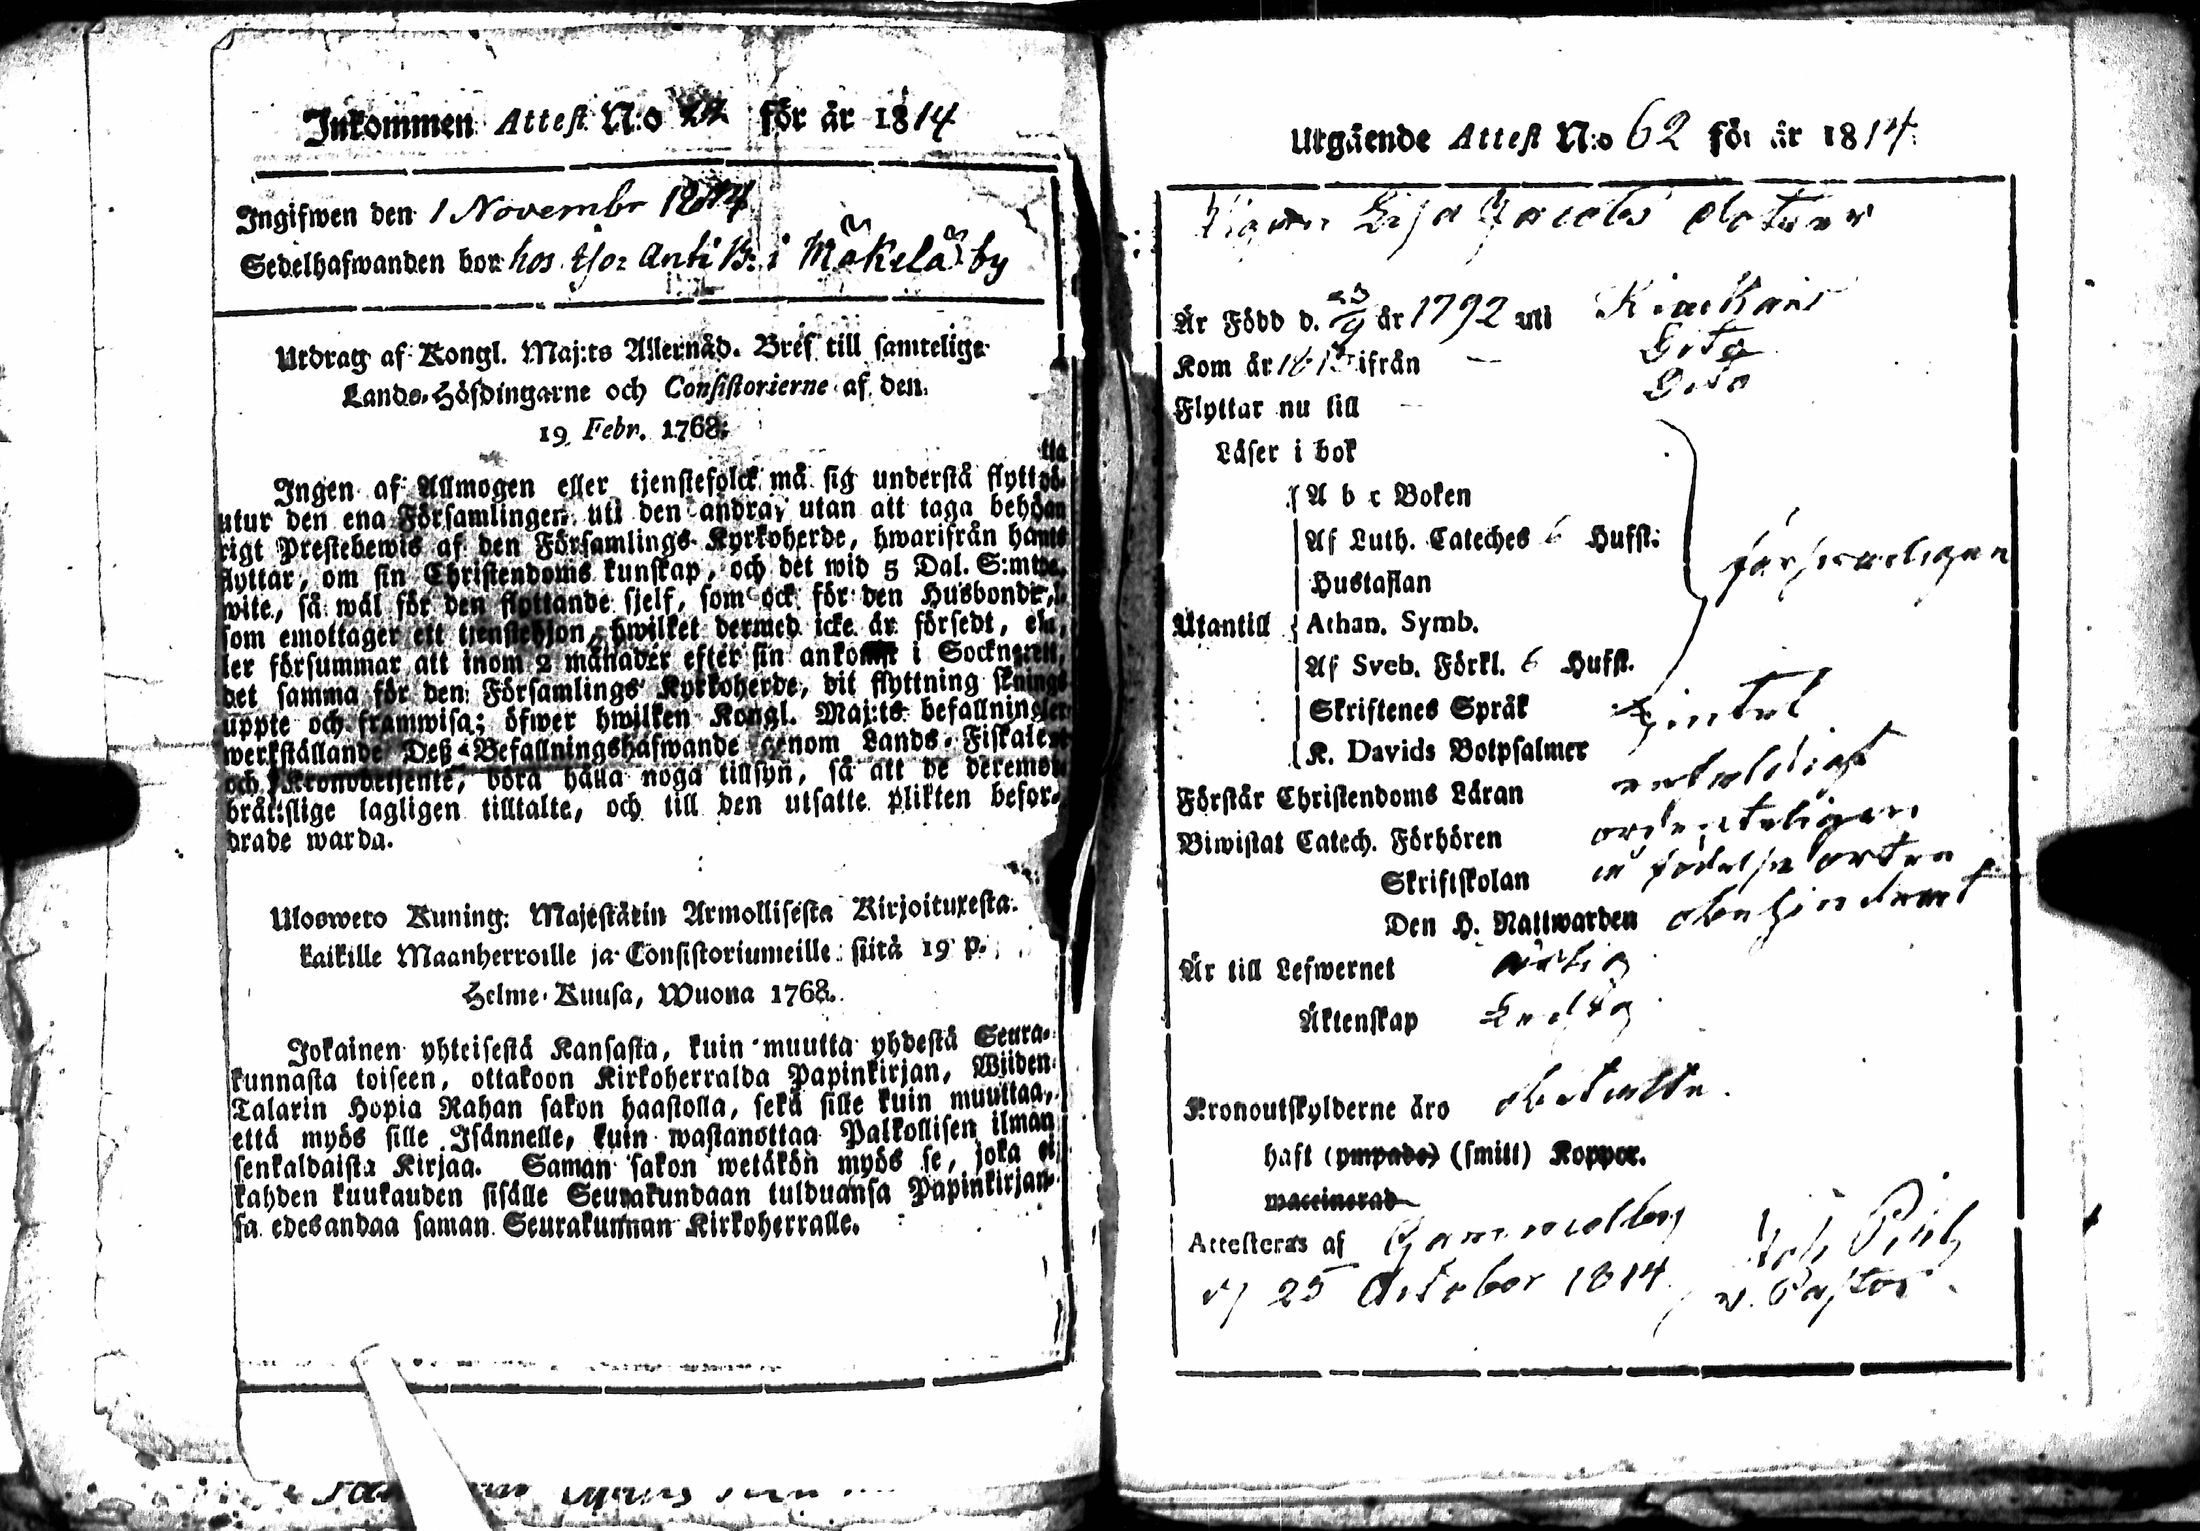 Inkommen Attest N:o 22 för år 1814
Ingifwen den 1 Novembr 1814
Sedelhafwanden bor hos Anti i Mäkelä by
Utdrag af Kongl. Maj:ts Allernåd. Bref till samtelige
Lands-Höfdingarne och Consistorierne af den
19 Febr. 1768:
Ingen af Allmogen eller tjenstefolck må sig understå flytta
utur den ena Församlingen uti den andra, utan att taga behö-
rigt Prestebewis af den Församlings Kyrkoherde, hwarifrån han
flyttar, om sin Christendoms kunskap, och det wid 5 Dal. S:mts
wite, så wäl för den flyttande sjelf, som ock för den Husbonde,
som emottager ett tjenstehjon, hwilket dermed icke är försedt, el-
ler försummar att inom 2 månader efter sin ankomst i Socknen,
det samma för den Församlings Kyrkoherde, dit flyttning sker,
uppte och framwisa; öfwer hwilken Kongl. Maj:ts befallnings
werkställande Deß Befallningshafwande genom Lands-Fiskaler
och Kronobetjente, böra hålla noga tillsyn, så att de deremot
bråttslige lagligen tilltalte, och till den utsatte plikten befor-
drade warda.
Ulosweto Kuning: Majestätin Armollisesta Kirjoituxesta.
kaikille Maanherroille ja Consistoriumeille siitä 19 p.
Helme-Kuusa, Wuona 1768.
Jokainen yhteisestä Kansasta, kuin muutta yhdestä Seura-
kunnasta toiseen, ottakoon Kirkoherralda Papinkirjan, Wiiden
Talarin Hopia Rahan sakon haastolla, sekä sille kuin muuttaa,
että myös sille Isännelle, kuin wastanottaa Palkollisen ilman
senkaldaista Kirjaa. Saman sakon wetäkön myös se, joka ei
kahden kuukauden sisälle Seurakundaan tulduansa Papinkirjan-
sa edesandaa saman Seurakunnan Kirkoherralle.
Utgående Attest N:o 62 för år 1814.
Pigan Lisa Jacobs dotter
Är Född d. 23/9 år 1792 uti
Kom år 1813 ifrån Dito
Flyttar nu till Dito
Läser i bok
A b c Boken
Af Luth. Cateches 6 Hufst:
Hustaflan
Utantill Athan. Symb. försvarligen
Af Sveb. Förkl. 6 Hufst.
Skriftenes Språk
K. Davids Botpsalmer
Förstår Christendoms Läran enfaldigt
Biwistat Catech. Förhören ordenteligen
Skriftskolan i födelse orten
Den H. Nattwarden obehindrat
Är till Lefwernet ärlig
Äktenskap Ledig
Kronoutskylderne äro betalte.
haft (ympade) (smitt) Koppor.
waccinerad
Attesteras af Gammelby
d 25 October 1814
v. Pastor